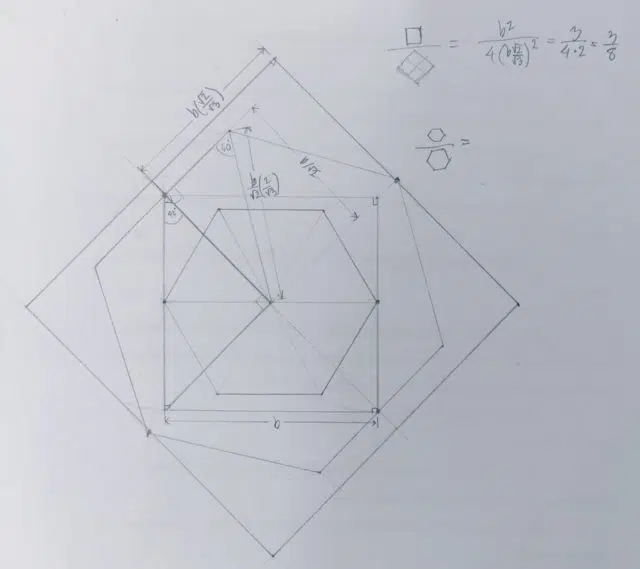 b² / 4(b√2/√3)² = 3/4·2 = 3/8
b(√2/√3)
60
b/√2
b/√2 (2/√3)
=
45°
b